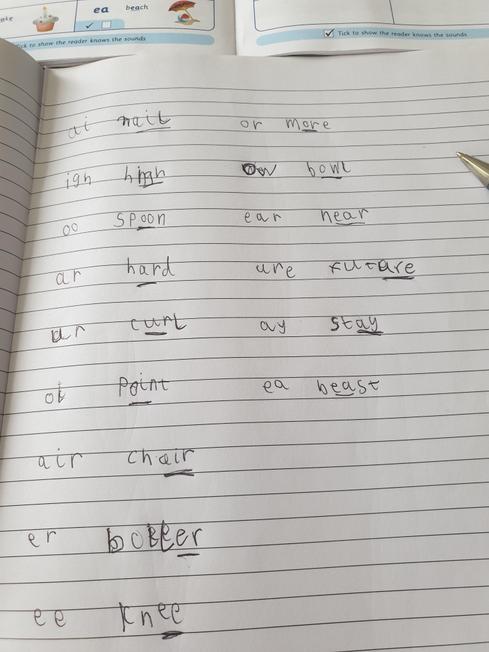 ea beach
Tick to show the reader knows the sounds
Tick to show the reader knows the sounds
ai nail or more
igh high ow bowl
oo spoon ear hear
ar hard ure future
ur curl ay stay
oi point ea beast
air chair
er
ee knee